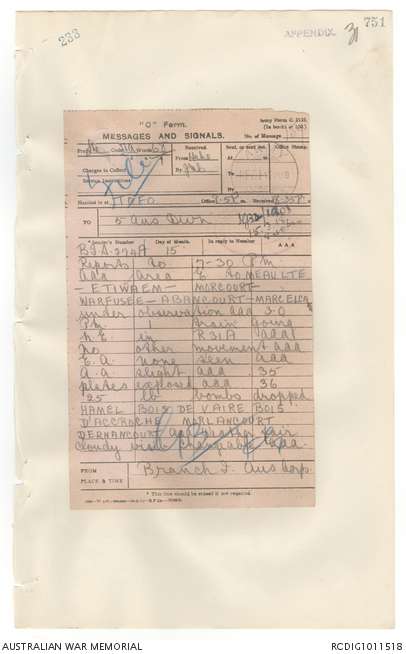 233
APPENDIX
751
"C" Form.
Army Form C. 2123.
MESSAGES AND SIGNALS.
No. of Message
Prefix Code Words 68
Received
From
By
Sent, or sent out.
Office Stamp.
At
To
By
Charges to Collect
Service Instructions
Handed in at
Office
Received
TO
5 Aus Divn
*Sender's Number
Day of Month.
In reply to Number
AAA
BIA 294A 15
Reports to 7-30 P.M.
aaa area E to MEAULTE
- ETINEHEM - MORCOURT -
WARFUSEE - ABANCOURT - MARCELCAVE
under observation aaa 3-0
P.M. 1 train going
N.E. in R31A aaa
no other movement aaa
E.A. none seen aaa
A.A. slight aaa 35
plates exposed aaa 36
25 lb bombs dropped
HAMEL BOIS DE VAIRE BOIS
D'ACCROCHE MORLANCOURT
DERNANCOURT aaa weather fair
cloudy aaa
FROM
PLACE & TIME
Branch I. Aus Corp
* This line should be erased if not required
AUSTRALIAN WAR MEMORIAL
RCDIG1011518